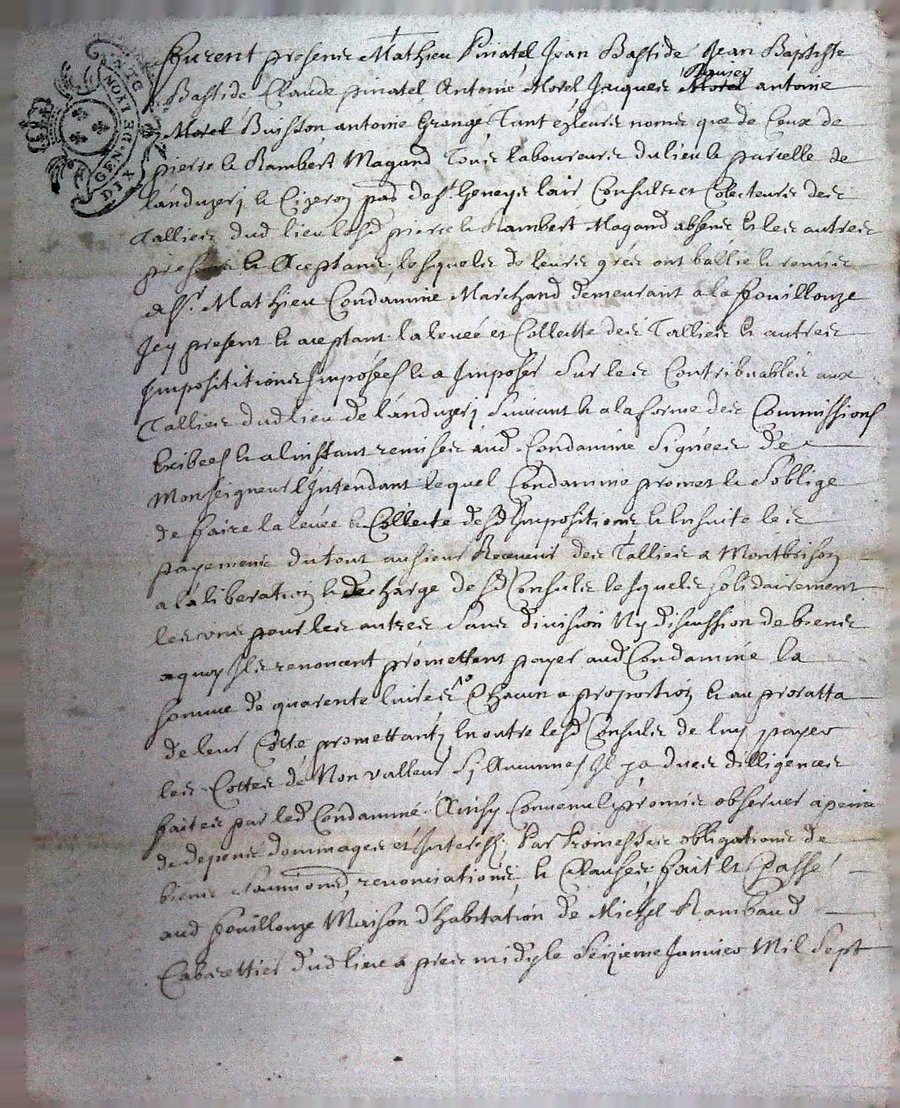 GEN. DE LYON
DIX
furent presens Mathieu Pinatel Jean Bastide Jean Baptiste
Bastide Claude pinatel Antoine Morel Jacques Morel antoine
Morel Buisson antoine Grange Tant a leurs noms que de Ceux de
pierre & Rambert Magand Tous laboureurs du lieu & parcelle de
landuzery & Cizeron par de st Geneys lair Consuls et Colecteurs des
Tallies dud lieu lesd pierre & Rambert Magand absens & les autres
presens & aceptans, lesquels de leurs grés ont ballié & remis
a sr. Mathieu Condamine Marchand demeurant a la fouillouze
Jcy present & aceptant la levée et Collecte des Tallies & autres
Impositions Imposées & a Imposer sur les Contribuables aux
Tallies dud lieu de landuzery suivant & a la forme des Commissions
Exibees & a linstant remises aud. Condamine signées de
Monseigneur l'Intendant lequel Condamine promet & s'oblige
de faire la levée & Collecte desd Impositions & Ensuite les
payemens du tout au sieur Receveur des Tallies a Montbrison
a la liberation & decharge desd Consuls lesquels solidairement
les uns pour les autres sans division Ny discussion de biens
a quoy Ils renoncent promettent payer aud Condamine la
somme de quarente livres Chacun a proportion & au proratta
de leur Cotte promettant En outre lesd Consuls de luy payer
les Cottes de Non valleur sy Aucunnes Il y a dues dilligences
faites par led Condamine. Ainsy Convenu & promis observer a peine
de depens dommages et Interests. Par promesses obligations de
biens soumissions, renonciations, & Clauses, fait et Passé
aud fouillouze Maison d'habitation de Michel Rambaud
Cabarettier dud lieu a pres midy le seizieme Janvier Mil sept